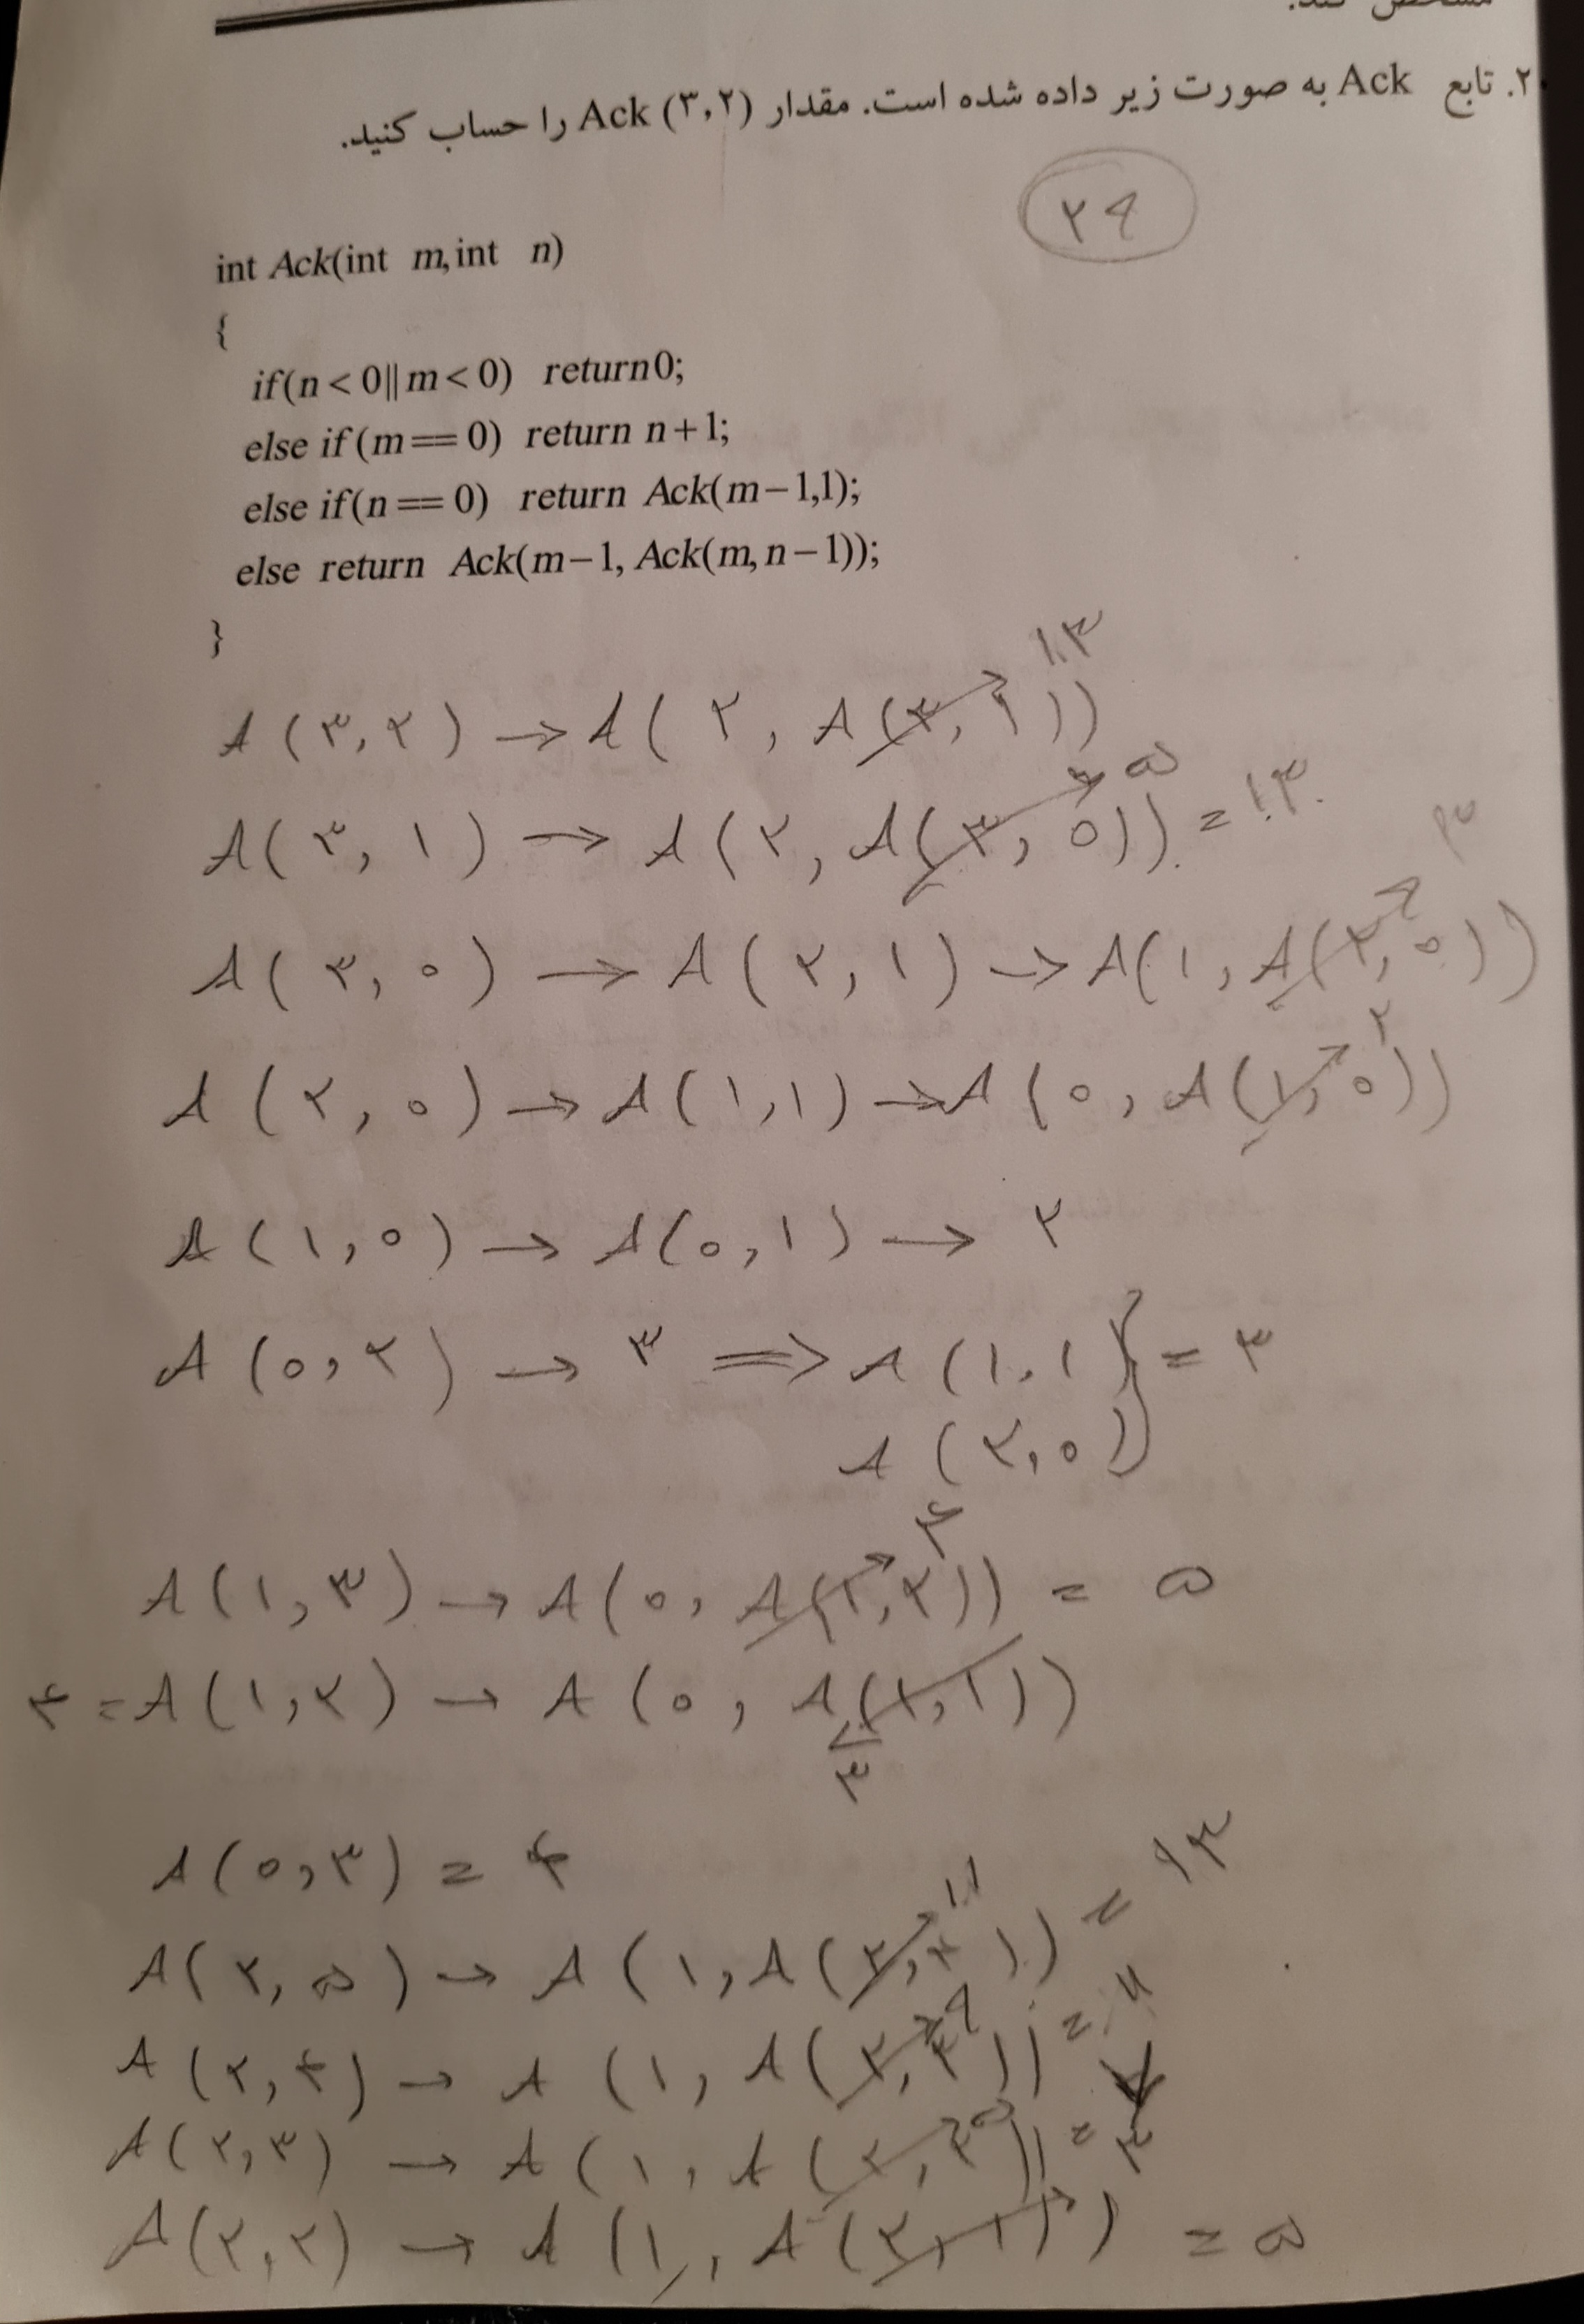 مشخص کنید.
۲. تابع Ack به صورت زیر داده شده است. مقدار Ack (۳,۲) را حساب کنید.
۲۹
int Ack(int m, int n)
{
if(n < 0 || m < 0) return 0;
else if (m == 0) return n + 1;
else if (n == 0) return Ack(m − 1,1);
else return Ack(m − 1, Ack(m, n − 1));
}
۱۳
A (۳,۲) → A( ۲, A (۳, ۱))
۵
A(۳, ۱) → A (۲, A(۳, ۰)) = ۱۳
۳
A( ۳, ۰) → A (۲, ۱) → A(۱, A(۲, ۰))
۲
A (۲, ۰) → A (۱,۱) → A (۰, A (۱, ۰))
A (۱,۰) → A(۰,۱) → ۲
A (۰,۲) → ۳ ⇒ A (۱,۱) } = ۳
A (۲,۰)
۴
A(۱,۳) → A(۰, A(۱,۲)) = ۵
۴ = A (۱,۲) → A (۰, A (۱,۱))
۳
A (۰,۳) = ۴
۱۱
A(۲, ۵) → A (۱, A (۲,۴)) = ۱۳
۹
A (۲,۴) → A (۱, A (۲,۳)) = ۱۱
A(۲,۳) → A (۱, A (۲,۲)) =
A(۲,۲) → A (۱, A (۲,۱)) = ۵